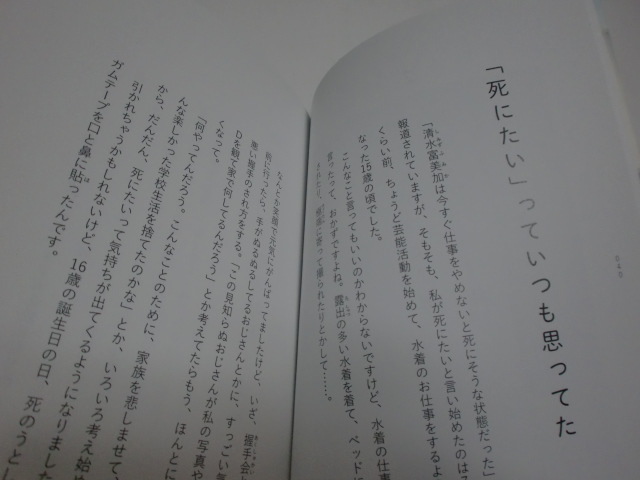 040
「死にたい」っていつも思ってた
「清水富美加は今すぐ仕事をやめないと死にそうな状態だった」
報道されていますが、そもそも、私が死にたいと言い始めたのは
くらい前、ちょうど芸能活動を始めて、水着のお仕事をするよ
なった15歳の頃でした。
こんなこと言ってもいいのかわからないですけど、水着の仕事
言ったって、おかずですよね。露出の多い水着を着て、ベッドに
されたり、
に寄って撮られたりとかして……。
なんとか笑顔で元気にがんばってましたけど、いざ、握手会
前に行ったら、手がぬるぬるしてるおじさんとかに、すっごい気
悪い握手のされ方をする。「この見知らぬおじさんが私の写真や
Dを観て家で何してるんだろう」とか考えてたらもう、ほんとに
くなって。
「何やってんだろう。こんなことのために、家族を悲しませて、
んな楽しかった学校生活を捨てたのかな」とか、いろいろ考え始め
から、だんだん、死にたいって気持ちが出てくるようになりました
引かれちゃうかもしれないけど、16歳の誕生日の日、死のうとし
ガムテープを口と鼻に貼ったんです。